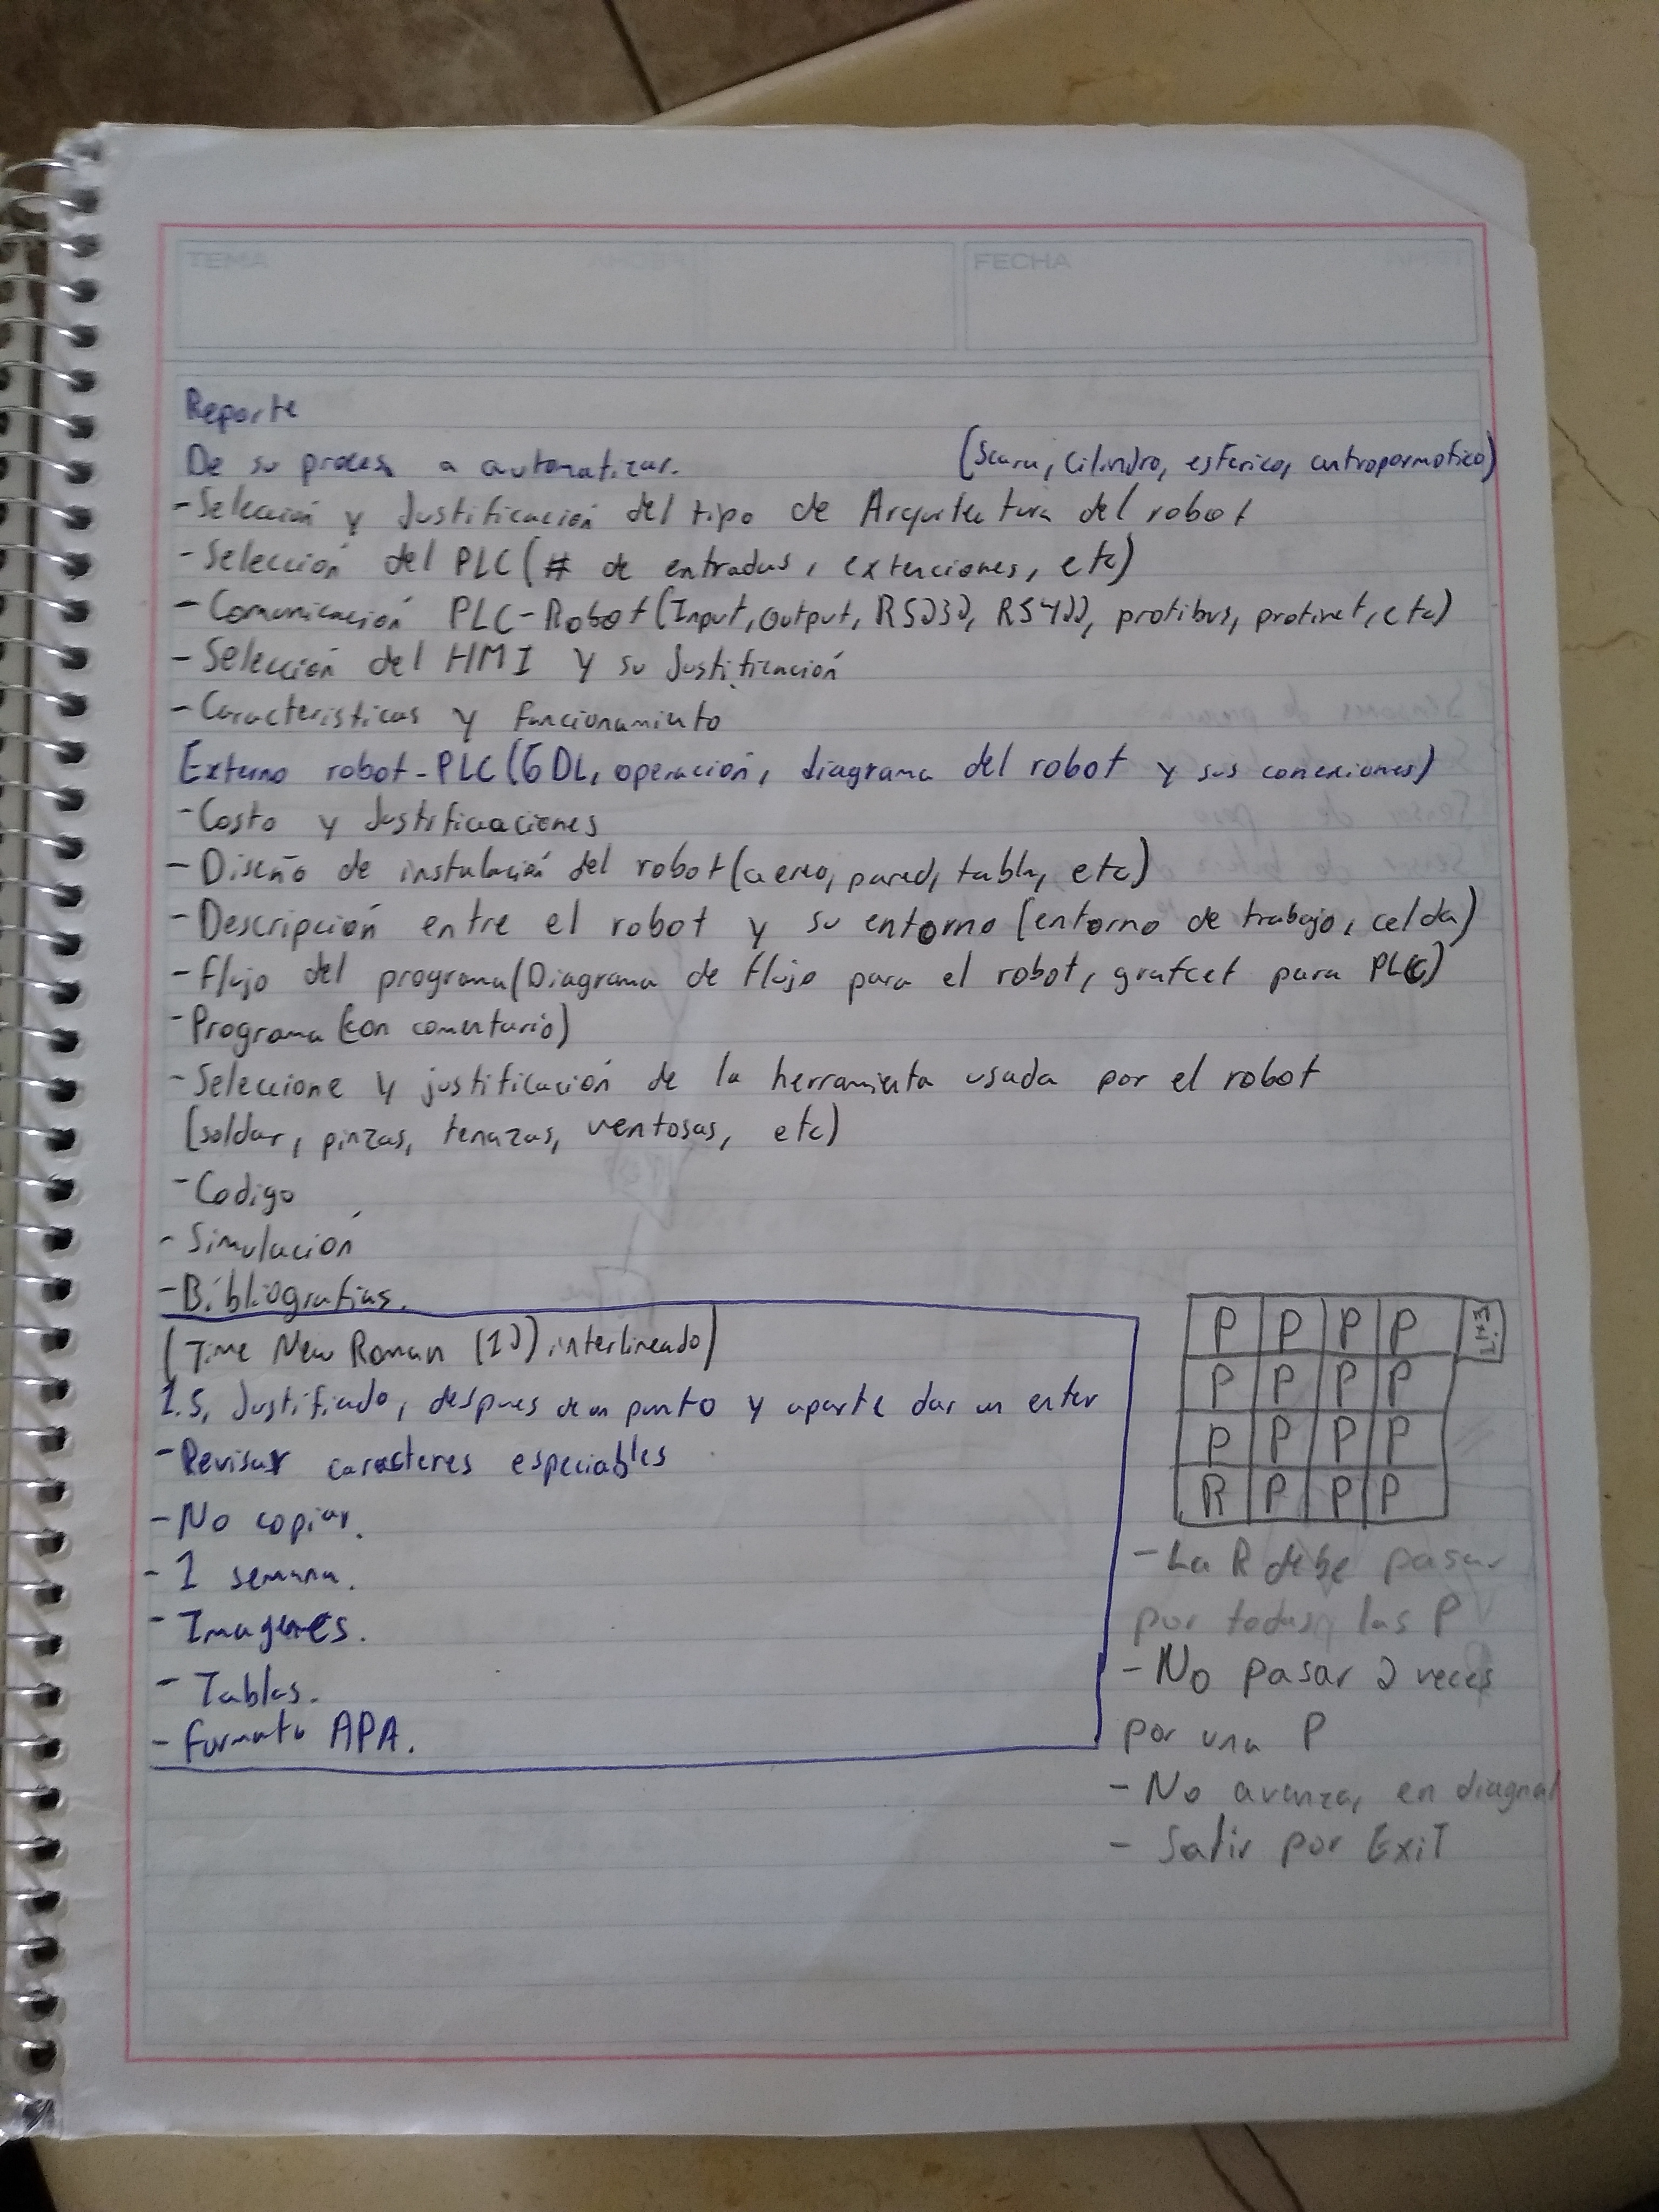 TEMA
FECHA
Reporte
De su proceso a automatizar.
(Scara, Cilindro, esferico, antropormofico)
-Selección y Justificación del tipo de Arquitectura del robot
-Selección del PLC (# de entradas, extenciones, etc)
-Comunicación PLC-Robot (Input, Output, RS232, RS422, profibus, profinet, etc)
-Selección del HMI y su Justificación
-Caracteristicas y Funcionamiento
Externo robot-PLC (GDL, operación, diagrama del robot y sus conexiones)
-Costo y Justificaciones
-Diseño de instalación del robot (aereo, pared, tabla, etc)
-Descripción entre el robot y su entorno (entorno de trabajo, celda)
-Flujo del programa (Diagrama de flujo para el robot, grafcet para PLC)
-Programa (con comentario)
-Seleccione y justificación de la herramienta usada por el robot
(soldar, pinzas, tenazas, ventosas, etc)
-Codigo
-Simulación
-Bibliografias.
(Time New Roman (12) interlineado)
1.5, Justificado, despues de un punto y aparte dar un enter
-Revisar caracteres especiables
-No copiar.
-1 semana.
-Imagenes.
-Tablas.
-Formato APA.
P P P P EXiT
P P P P
P P P P
R P P P
-La R debe pasar
por todas las P
-No pasar 2 veces
por una P
-No avanzar en diagnal
-Salir por ExiT